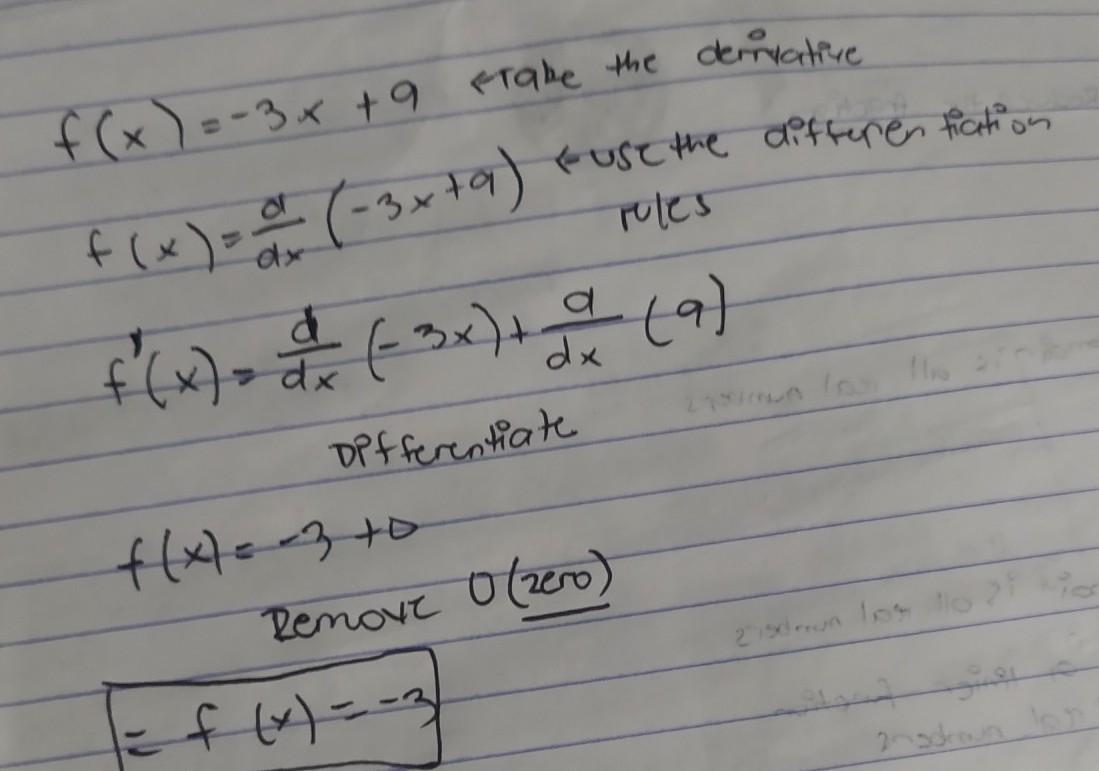 f(x) = -3x + 9 ← Take the derivative
f(x) = d/dx (-3x+9) ← use the differentiation
rules
f'(x) = d/dx (-3x) + d/dx (9)
Differentiate
f(x) = -3 + 0
Remove 0 (zero)
= f (x) = -3